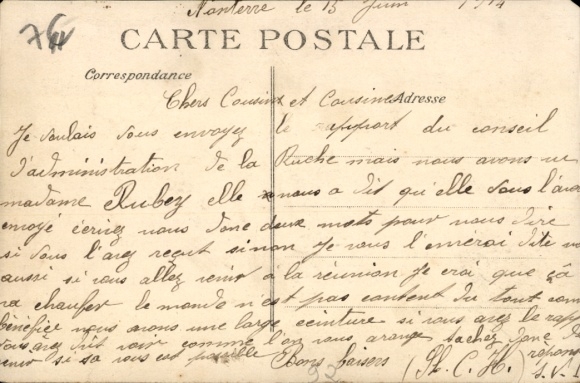 Nanterre le 15 Juin 1914
CARTE POSTALE
Correspondance
Adresse
Chers Cousins et Cousines
Je voulais vous envoyez le rapport du conseil
d'administration de la Ruche mais nous avons vu
madame Rubey elle nous a dit qu'elle vous l'avai
envoyé écrivez nous donc deux mots pour nous dire
si vous l'avez reçut sinon Je vous l'enverai dite no
aussi si vous allez venir à la réunion Je crai que çà
va chaufer le monde n'est pas content du tout com
bénéfice nous avons une large ceinture si vous avez le rapp
vous avez dût voir comme l'on nous arange tachez donc de
venir si sa vous est possible Bons baisers
S.V.P